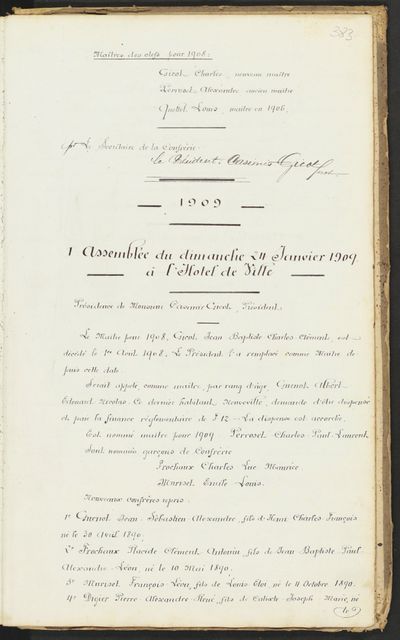 383
Maîtres des clefs pour 1908:
Gicot Charles, nouveau maître
Perroset Alexandre ancien maître
Quellet Louis, maître en 1906,
pr Le Secrétaire de la Confrérie
le Président: Casimir Gicot
1909
1 Assemblée du dimanche 24 Janvier 1909
à l'Hotel de Ville
Présidence de Monsieur Casimir Gicot, Président.
Le Maître pour 1908, Gicot, Jean Baptiste Charles Clément, est
décédé le 1er Août 1908. Le Président l'a remplacé comme Maître de
puis cette date.
Serait appelé, comme maître par rang d'âge, Guenot Albert
Edouard Nicolas. Ce dernier habitant Neuveville, demande d'être dispensé
et paie la finance réglementaire de F 12 – La dispense est accordée.
Est nommé maître pour 1909 Perroset Charles Paul Laurent.
Sont nommés garçons de Confrérie
Frochaux Charles Luc Maurice
Muriset Emile Louis.
Nouveaux confrères reçus.
1o Guenot Jean Sébastien Alexandre, fils d'Henri Charles François
né le 30 Avril 1890.
2o Frochaux Placide Clément Antonin fils de Jean Baptiste Paul
Alexandre Léon, né le 10 Mai 1890.
3o Muriset François Léon, fils de Louis Eloi, né le 4 Octobre 1890.
4o Digier Pierre Alexandre René, fils de Calixte Joseph Marie, né
le 6